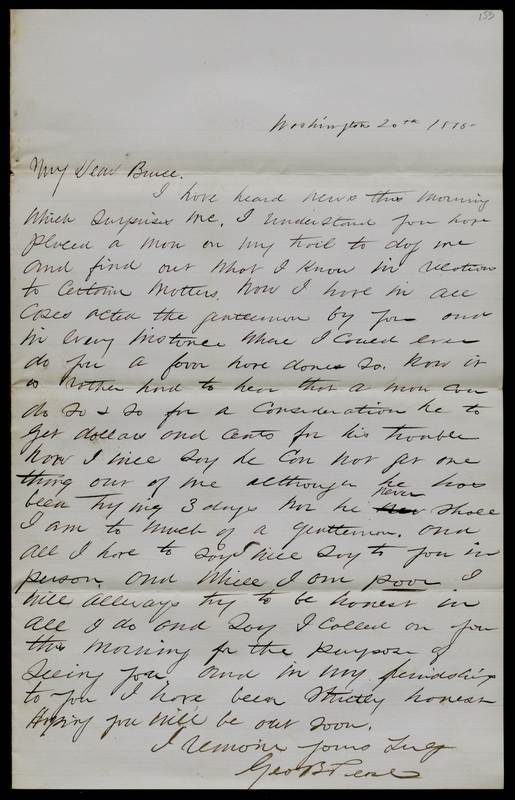 153
Washington 20th 1878
My Dear Bruce.
I have heard news this morning
which surprises me. I understand you have
placed a man on my trail to dog me
and find out what I know in relation
to certain matters. Now I have in all
cases acted the gentleman by you and
in every instance where I could ever
do you a favor have done so. Now it
is rather hard to hear that a man can
do so & so for a consideration he to
get dollars and cents for his trouble
now I will say he can not get one
thing out of me although he has
been trying 3 days nor he never shall
I am to much of a gentleman. and
all I have to say I will say to you in
person. and while I am poor I
will allways try to be honest in
all I do and say I called on you
this morning for the purpose of
seeing you, and in my friendship
to you I have been strictly honest
Hoping you will be out soon.
I remain yours Truly
Geo B